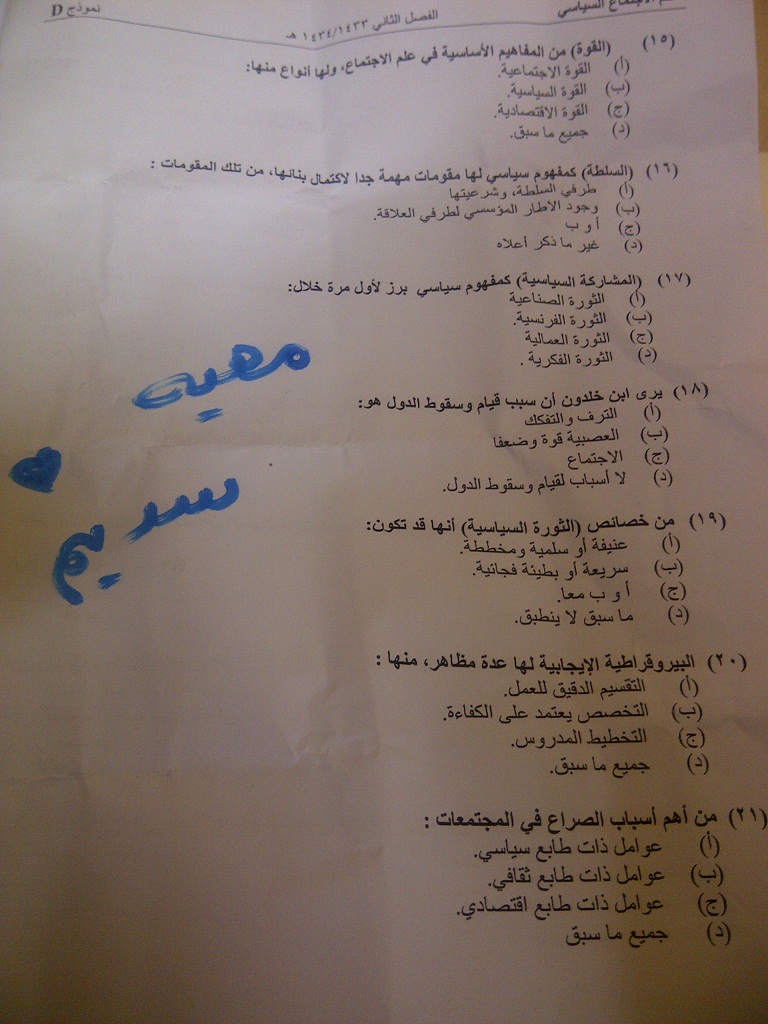 علم الاجتماع السياسي
الفصل الثاني ١٤٣٤/١٤٣٣ هـ
نموذج D
(١٥) (القوة) من المفاهيم الأساسية في علم الاجتماع، ولها أنواع منها:
(أ) القوة الاجتماعية.
(ب) القوة السياسية.
(ج) القوة الاقتصادية.
(د) جميع ما سبق.
(١٦) (السلطة) كمفهوم سياسي لها مقومات مهمة جدا لاكتمال بنائها، من تلك المقومات :
(أ) طرفي السلطة، وشرعيتها
(ب) وجود الاطار المؤسسي لطرفي العلاقة.
(ج) أ و ب
(د) غير ما ذكر أعلاه
(١٧) (المشاركة السياسية) كمفهوم سياسي برز لأول مرة خلال:
(أ) الثورة الصناعية
(ب) الثورة الفرنسية.
(ج) الثورة العمالية
(د) الثورة الفكرية .
(١٨) يرى ابن خلدون أن سبب قيام وسقوط الدول هو:
(أ) الترف والتفكك
(ب) العصبية قوة وضعفا
(ج) الاجتماع
(د) لا أسباب لقيام وسقوط الدول.
(١٩) من خصائص (الثورة السياسية) أنها قد تكون:
(أ) عنيفة أو سلمية ومخططة.
(ب) سريعة أو بطيئة فجائية.
(ج) أ و ب معا.
(د) ما سبق لا ينطبق.
(٢٠) البيروقراطية الإيجابية لها عدة مظاهر، منها :
(أ) التقسيم الدقيق للعمل.
(ب) التخصص يعتمد على الكفاءة.
(ج) التخطيط المدروس.
(د) جميع ما سبق.
(٢١) من أهم أسباب الصراع في المجتمعات :
(أ) عوامل ذات طابع سياسي.
(ب) عوامل ذات طابع ثقافي.
(ج) عوامل ذات طابع اقتصادي.
(د) جميع ما سبق
سديم